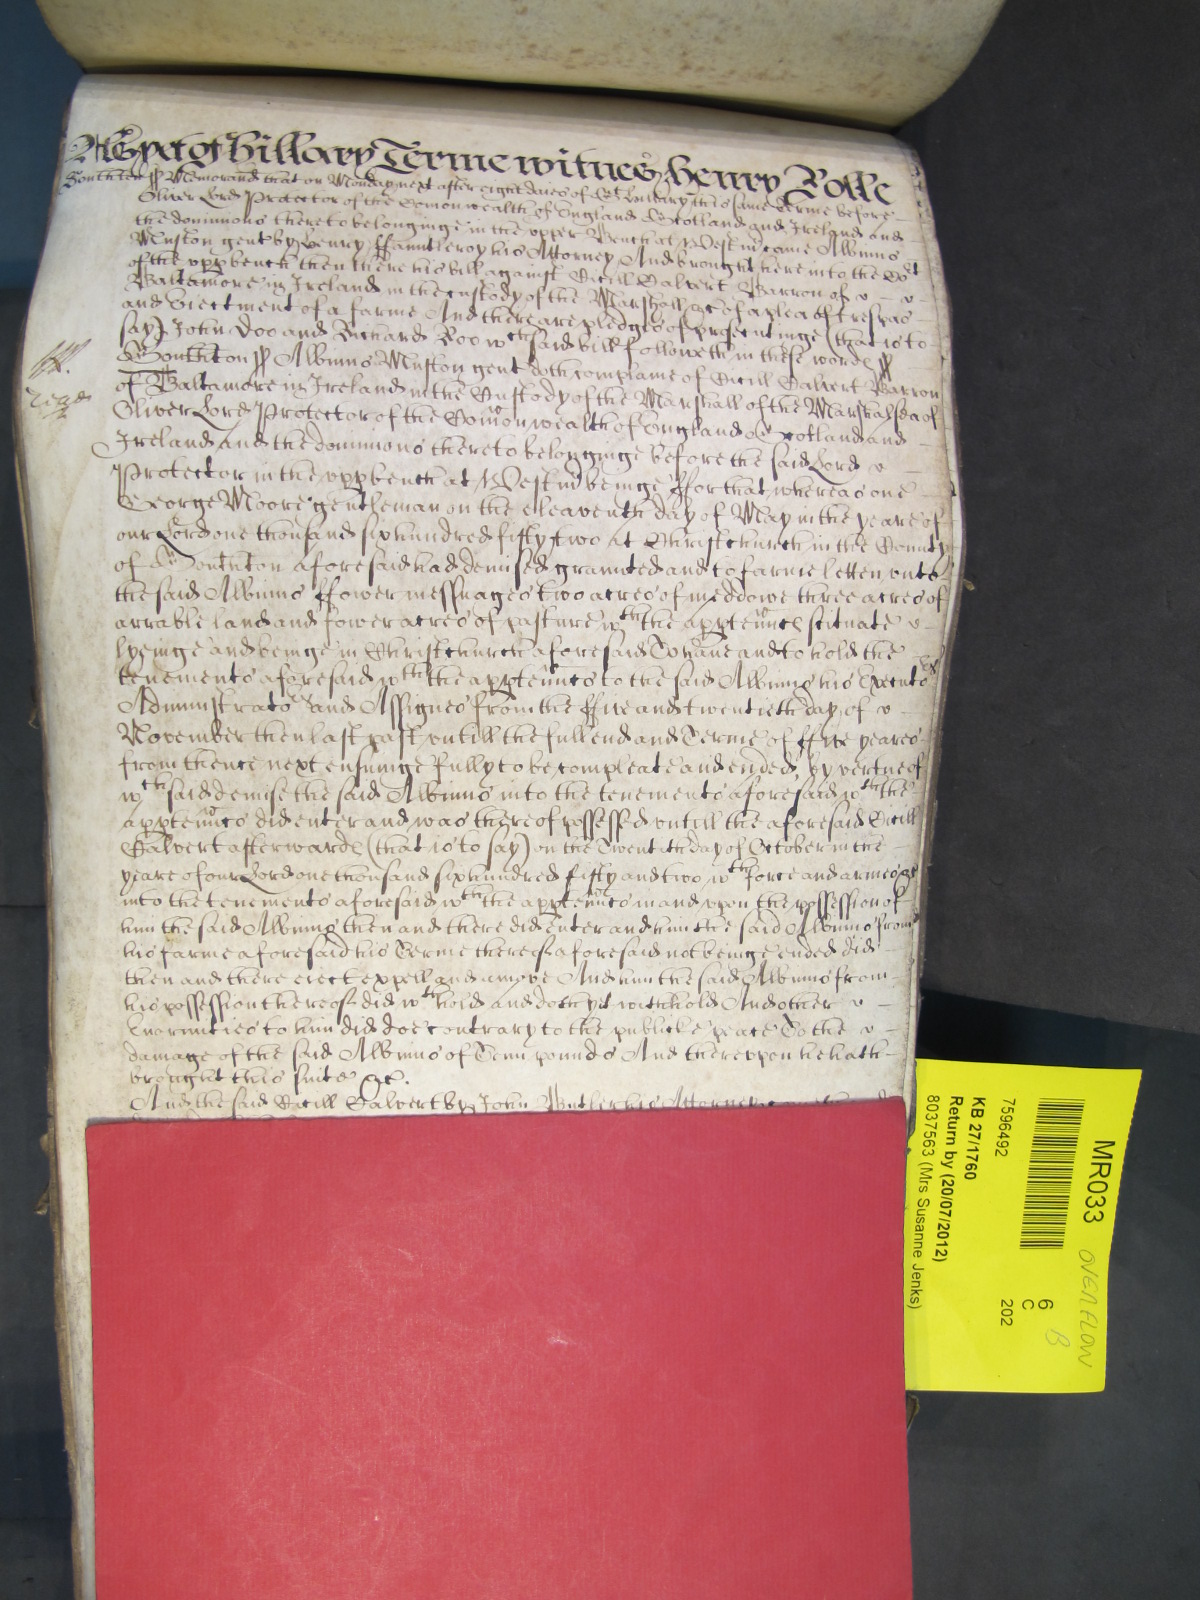 As yet of Hillary Terme witnes Henry Rolle
Southton ss Memorand that on Monday next after eight daies of St Hillary this same Terme before
Oliver Lord Protector of the Comon wealth of England Scotland and Ireland and
the dominions thereto belonginge in the upper Bench at Westm came Albinus
Muston gent by Henry ffauntleroy his Attorney And brought here into the Cot
of the upp bench then there his bill against Cicill Calvert Barron of
Baltamore in Ireland in the custody of the Marshall &c of a plea of trespas
and Eiectment of a farme And there are pledges of prosecutinge (that is to
say) John Doo and Richard Roo wch said bill followeth in these words ss
Southton ss Albinus Muston gent doth complaine of Cicill Calvert Barron
of Baltamore in Ireland in the Custody of the Marshall of the Marshalsea of
Oliver Lord Protector of the Comon wealth of England Scotland and
Ireland and the dominions thereto belonginge before the said Lord
Protector in the upp bench at Westm beinge ffor that whereas one
George Moore gentleman on the eleaventh day of May in the yeare of
our Lord one thousand six hundred fifty two at Christchurch in the County
of Southton aforesaid had demised graunted and to farme letten unto
the said Albinus ffower messuages two acres of meddowe three acres of
arrable land and fower acres of pasture wth the apptennces scituate
lyeinge and beinge in Christchurch aforesaid To have and to hold the
tenements aforesaid wth the apptennces to the said Albinus his Executo
Administrators and Assignes from the ffive and twentieth day of
November then last past untill the full end and Terme of ffive yeares
from thence next ensuinge fully to be compleate and ended, by vertue of
wch said demise the said Albinus into the tenements aforesaid wth the
apptennces did enter and was thereof possessed untill the aforesaid Cicill
Calvert afterwards (that is to say) on the Twentith day of October in the
yeare of our Lord one thousand six hundred fifty and two wth force and armes &c
into the tenements aforesaid wth the apptennces in and upon the possession of
him the said Albinus then and there did enter and him the said Albinus from
his farme aforesaid his Terme thereof aforesaid not beinge ended did
then and there eiect expell and amove And him the said Albinus from
his possession thereof did wthhold and doth yet withhold And other
Enormities to him did doe contrary to the publicke peace To the
damage of the said Albinus of Tenn pounds And thereupon he hath
brought this suite &c.
And the said Cicill Calvert by John Butler his Attorney
MR033
OVERFLOW
B
7596492
6
C
202
KB 27/1760
Return by (20/07/2012)
8037563 (Mrs Susanne Jenks)